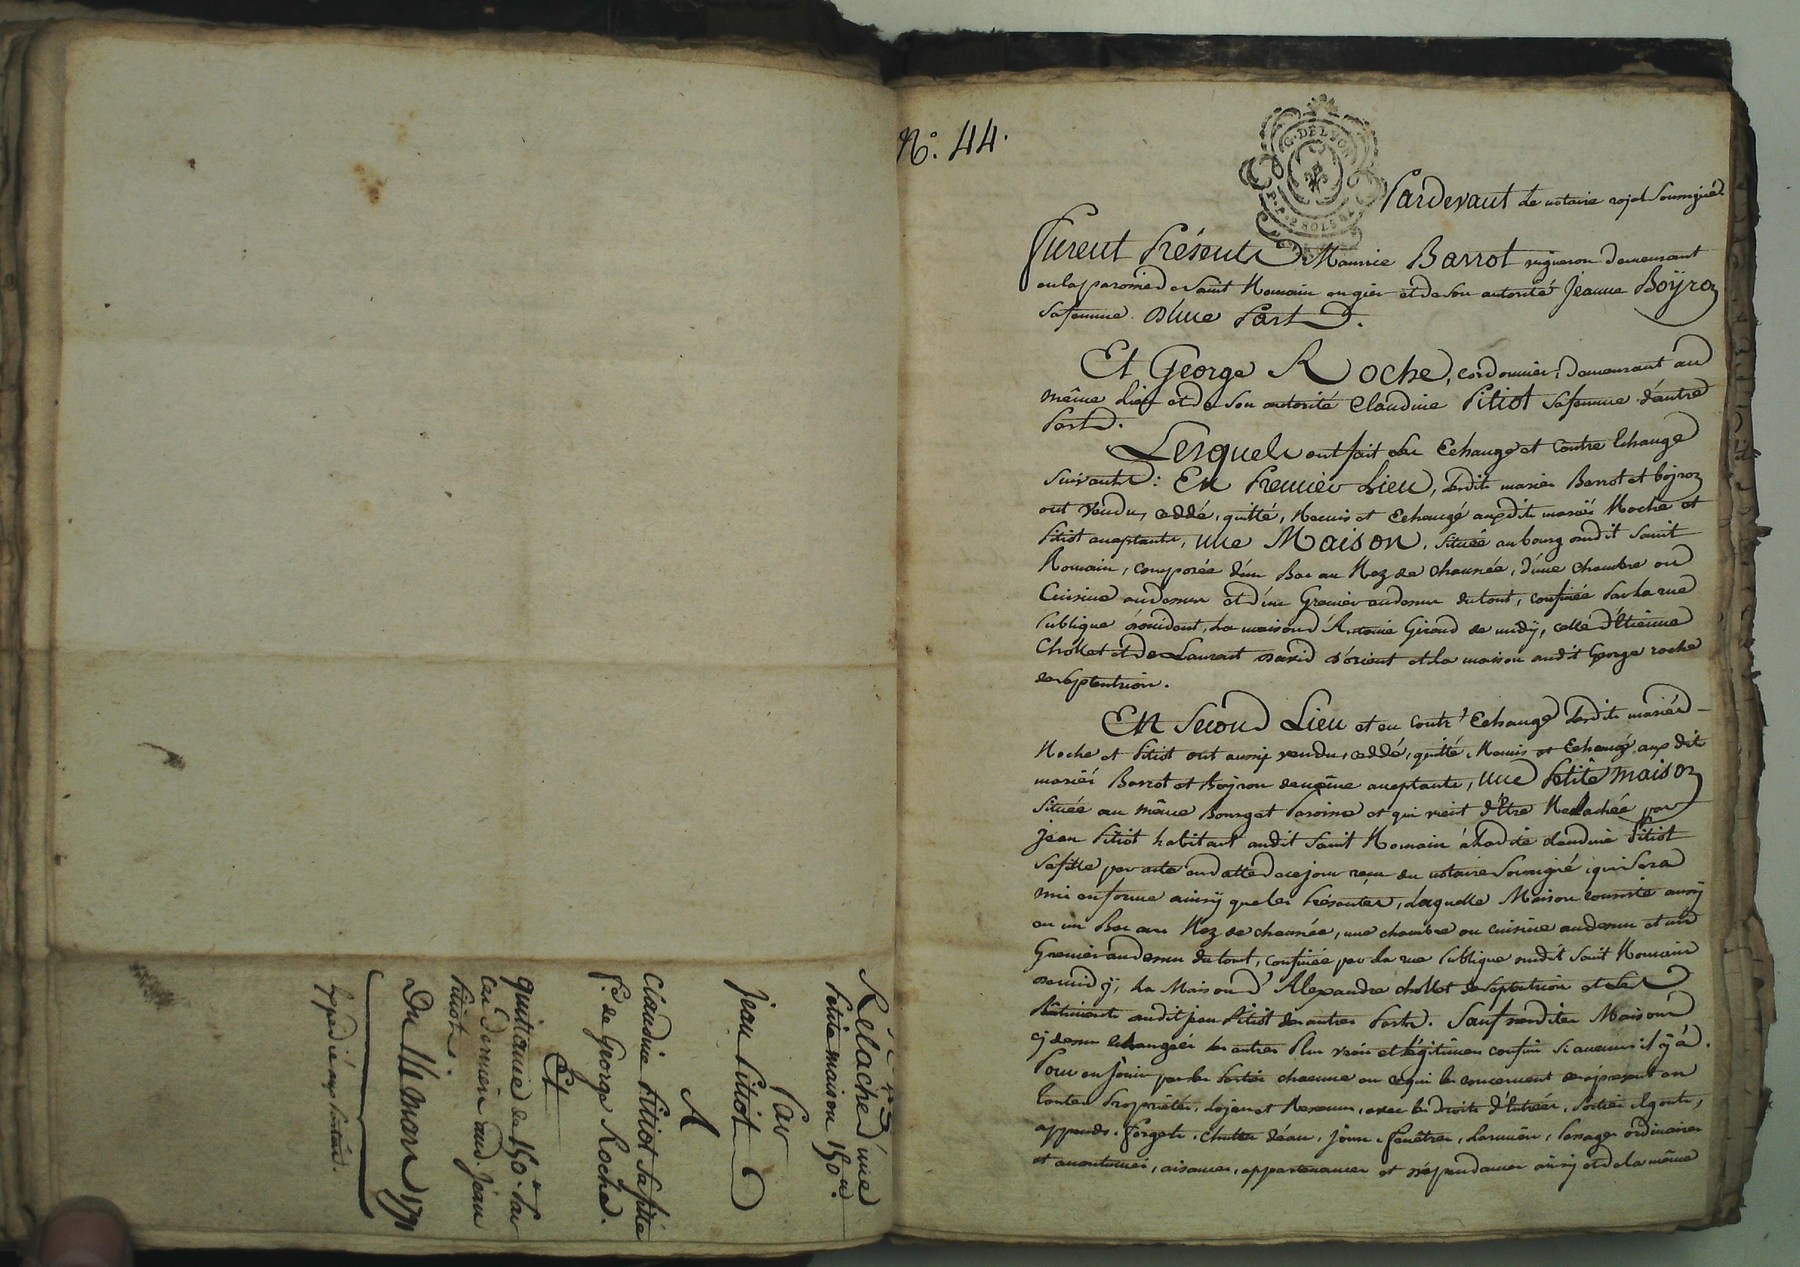 Relache d'une
Petite maison 150 ₶.
Par
Jean Pitiot
A
Claudine Pitiot sa fille
fe. de George Roche.
Et
quittance de 150 ₶ par
ce dernier aud. Jean
Pitiot.
Du 11 mars 1791
Expédié aux parties.
N.° 44.
G. DE LYON
Pardevant le notaire royal soussigné
Furent Présents Maurice Barrot vigneron demeurant
en la paroisse de Saint Romain en gier et de son autorité Jeanne Boÿron
sa femme D'une Part.
Et George Roche, cordonnier, demeurant au
même Lieu et de son autorité Claudine Pitiot sa femme d'autre
Part.
Lesquels ont fait les Echange et contre Echange
suivants: En Premier Lieu, lesdits mariés Barrot et boÿron
ont vendu, cedé, quitté, Remis et Echangé auxdits mariés Roche et
Pitiot acceptants, une Maison, située au bourg dudit Saint
Romain, composée d'un Bas au Rez de chaussée, d'une chambre ou
Cuisine au dessus et d'un Grenier au dessus du tout, confinée par la rue
Publique d'occident, la maison d'Antoine Giraud de midÿ, celle d'Etienne
Chollet et de Laurent David d'orient et la maison audit George roche
de septentrion.
En Second Lieu et en contr'Echange lesdits mariés
Roche et Pitiot ont aussy vendu, cedé, quitté, Remis et Echangé aux dits
mariés Barrot et Boÿron de même acceptants, une Petite maison
située au même Bourg et Paroisse et qui vient d'être Relachée par
Jean Pitiot habitant audit Saint Romain à ladite Claudine Pitiot
sa fille par acte en datte de ce jour reçu du notaire soussigné, qui sera
mis en forme ainsy que les Présentes, Laquelle Maison consiste aussy
en un Bas au Rez de chaussée, une chambre ou cuisine au dessus et un
Grenier au dessus du tout, confinée par la rue Publique dudit Saint Romain
de midy, la Maison d'Alexandre chollet de septentrion et les
Bâtiments audit jean Pitiot des autres Parts. Sauf desdites Maisons
cy dessus échangées les autres Plus vrais et légitimes confins si aucuns il y à.
Pour en jouir par les Parties chacune en ce qui les concernent dès à présent en
toutes Propriétés, Loyers et Revenus, avec les droits d'Entrées, Sorties, Egouts,
appends, forgets, chutes d'eau, jours, fenêtres, Larmiers, Passages ordinaires
et accoutumés, aisances, appartenances et dépendances ainsy et de la même